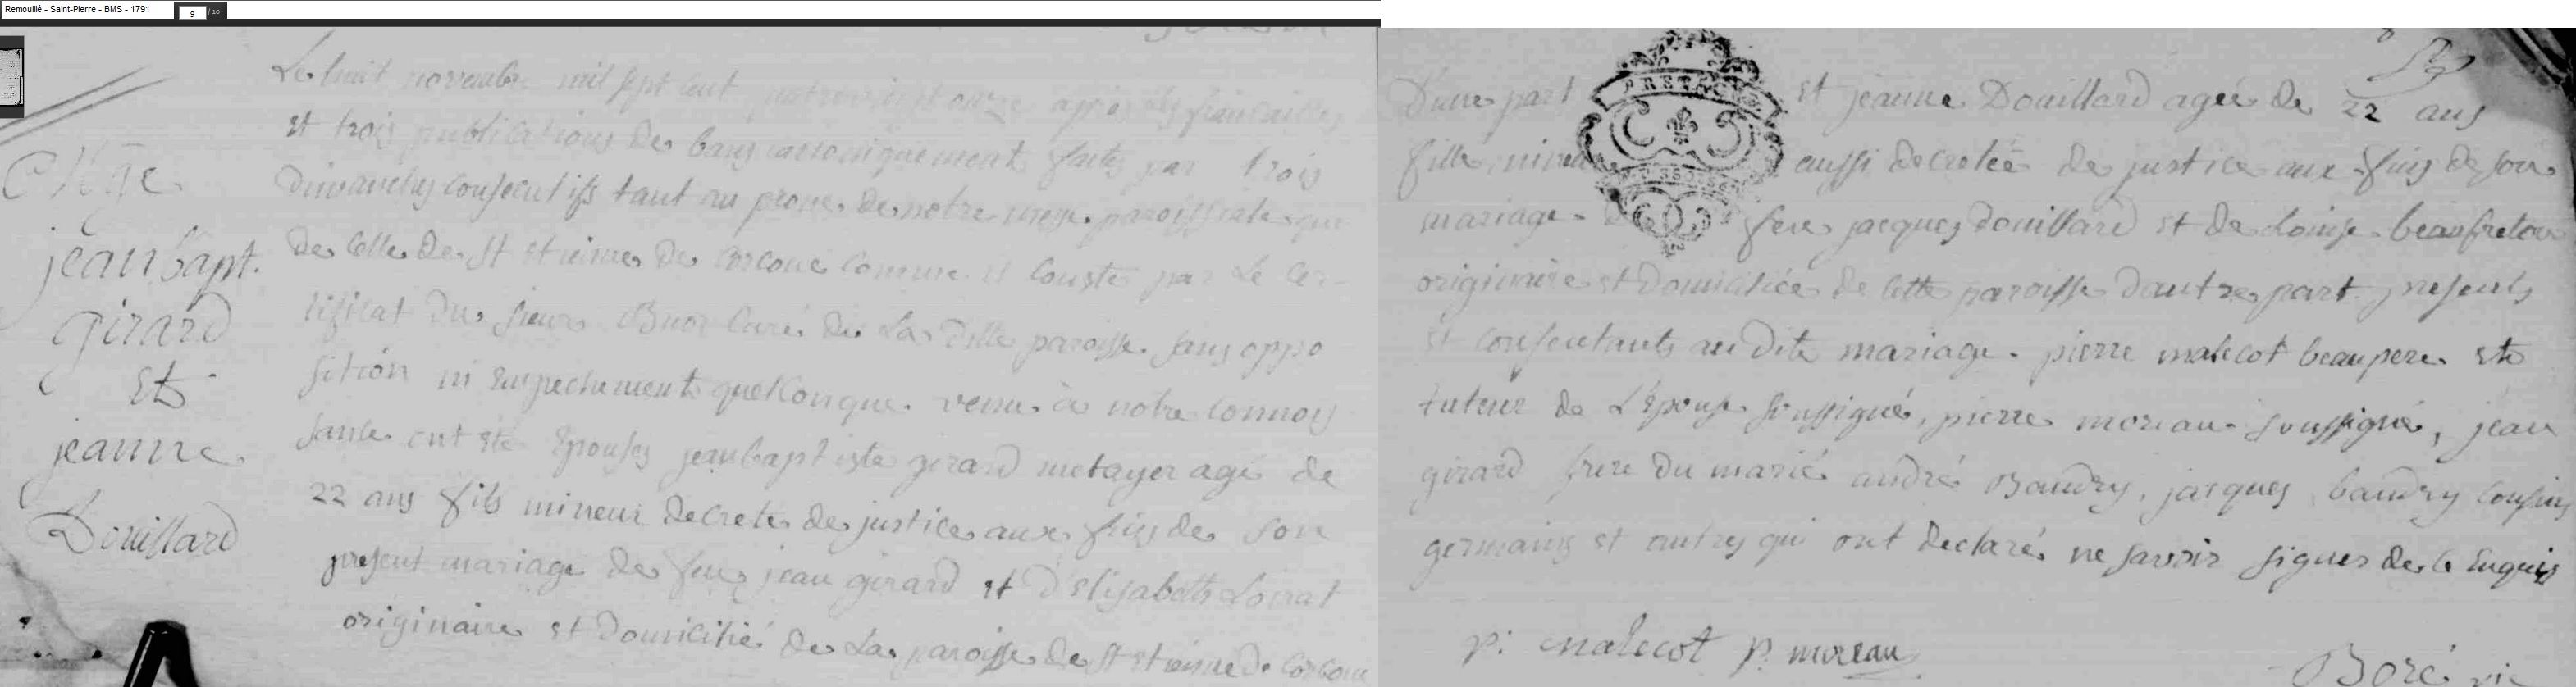 Remouillé - Saint-Pierre - BMS - 1791
9 / 10
Le huit novembre mil sept cent quatrevingt onze apres les fiancailles
et trois publications de bans canoniquement faites par trois
dimanches consecutifs tant au prone de notre messe paroissiale que
de celle de St etienne de corcoué comme il conste par le cer-
tificat du sieur Buor curé de la ditte paroisse sans oppo
sition ni empechement quelconque venu à notre connois
sance ont été epousés jean baptiste girard metayer agé de
22 ans fils mineur decreté de justice aux fins de son
present mariage de feu jean girard et d'elisabeth Loirat
originaire et domicilié de la paroisse de St etienne de corcoué
Mge
jean bapt.
girard
et
jeanne
Douillard
BRETAGNE
D'une part et jeanne Douillard agée de 22 ans
fille mineu aussi decretée de justice aux fins de son
mariage feu jacques douillard et de Louise beaufreton
originaire et domiciliée de cette paroisse d'autre part presents
et consentants au dit mariage pierre malecot beaupere et
tuteur de L'épouse soussigné, pierre moreau soussigné, jean
girard frere du marié andré Baudry, jacques baudry cousins
germains et autres qui ont declaré ne savoir signer de ce enquis
p: malecot p. moreau
Boré vic